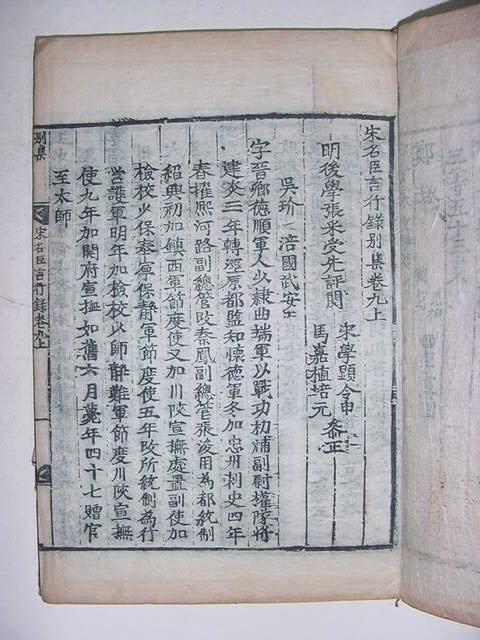 宋名臣言行錄別集卷九上
明後學張采受先評閱
宋學顯令申
馬嘉植培元 叅正
吳玠 涪國武安王
字晉卿德順軍人少隸曲端軍以戰功初補副尉擢隊將
建炎三年轉涇原都監知懷德軍冬加忠州刺史四年
春擢熙河路副總管改秦鳳副總管張浚用為都統制
紹興初加鎮西軍節度使又加川陝宣撫處置副使加
檢校少保奉寧保靜軍節度使五年改所統制為行
營護軍明年加檢校少師靜難軍節度川陝宣撫
使九年加開府宣撫如舊六月薨年四十七贈官
至太師
別集
宋名臣言行錄卷九上